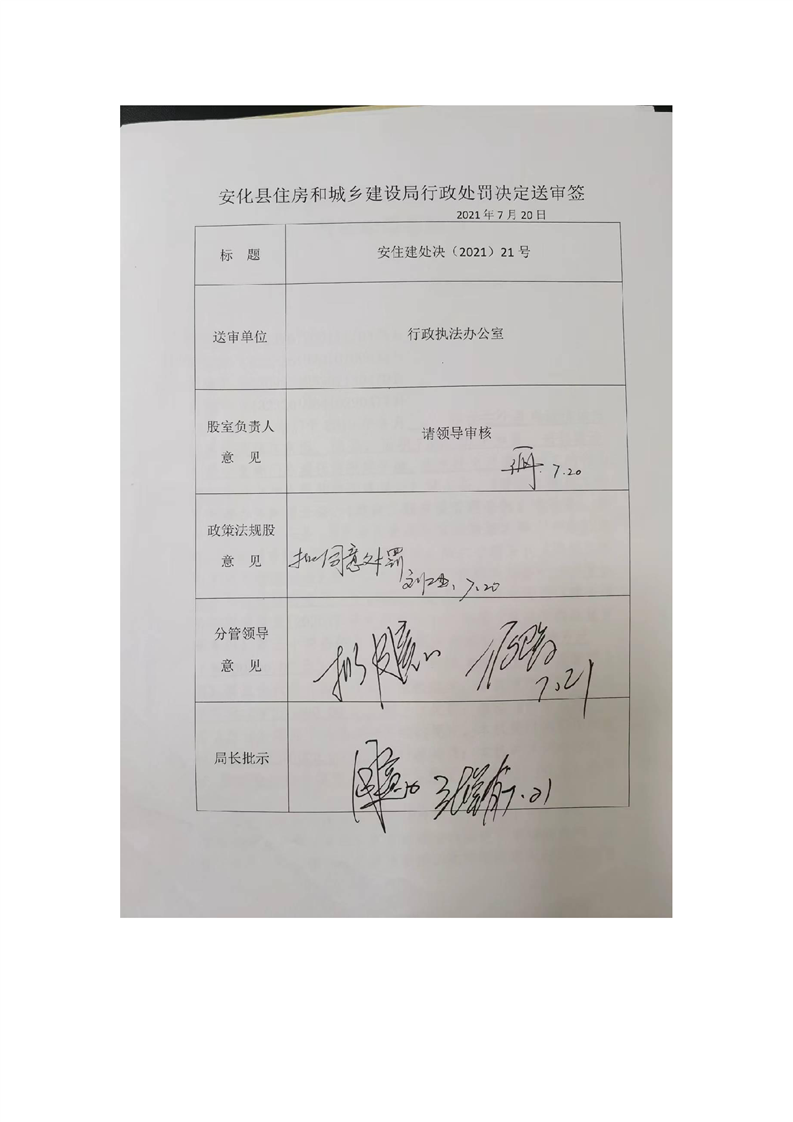 安化县住房和城乡建设局行政处罚决定送审签
2021年7月20日
标 题
安住建处决（2021）21号
送审单位
行政执法办公室
股室负责人
意 见
请领导审核
7.20
政策法规股
意 见
拟同意处罚
7.20
分管领导
意 见
拟同意
7.21
局长批示
同意
7.21